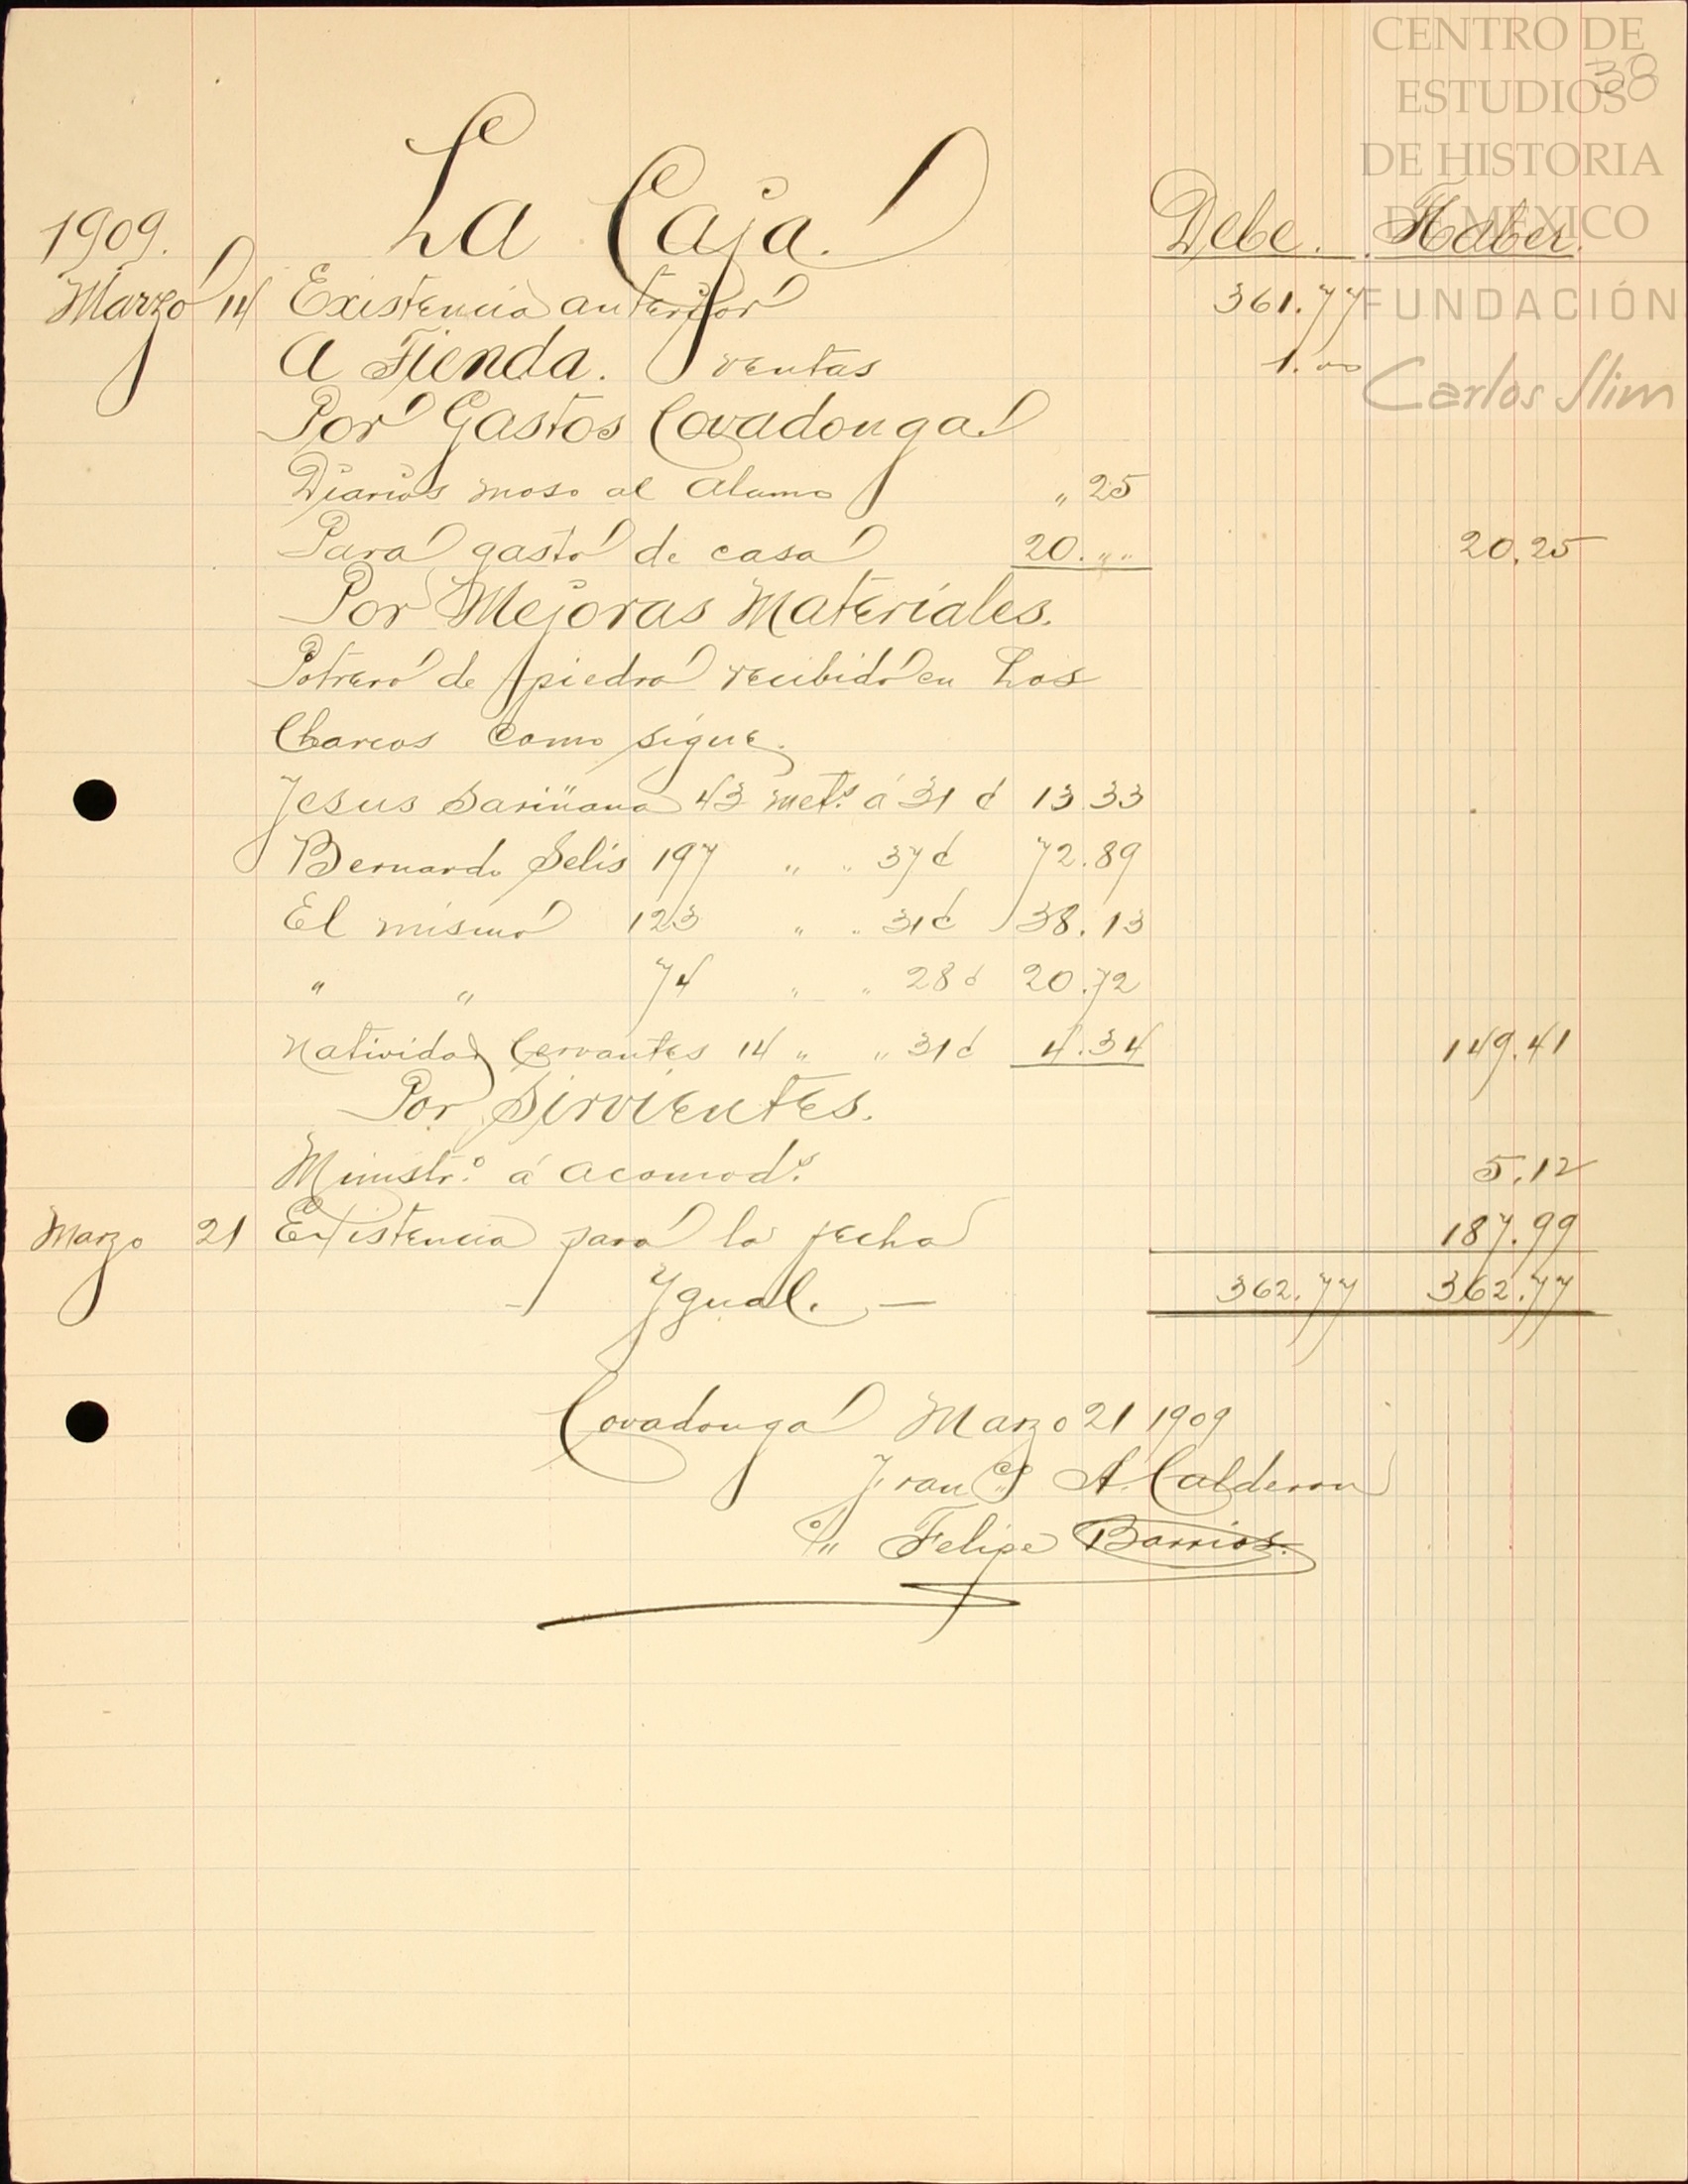 CENTRO DE
ESTUDIOS
DE HISTORIA
DE MEXICO
FUNDACIÓN
Carlos Slim
38
La Caja.
1909. Debe. Haber.
Marzo 14 Existencia anterior 361.77
A Tienda. ventas 1.00
Por Gastos Covadonga.
Diarios moso al Alamo „ 25
Para gasto de casa 20. „ „ 20.25
Por Mejoras Materiales.
Potrero de piedra recibido en Los
Charcos como sigue.
Jesus Sariñana 43 metˢ á 31 ¢ 13.33
Bernardo Selis 197 „ „ 37¢ 72.89
El mismo 123 „ „ 31¢ 38.13
„ „ 74 „ „ 28¢ 20.72
Natividad Cervantes 14 „ „ 31¢ 4.34 149.41
Por Sirvientes.
Ministrº á acomodˢ 5.12
Marzo 21 Existencia para la fecha 187.99
Ygual. — 362.77 362.77
Covadonga Marzo 21 1909
Francº A. Calderon
Felipe Barrios.